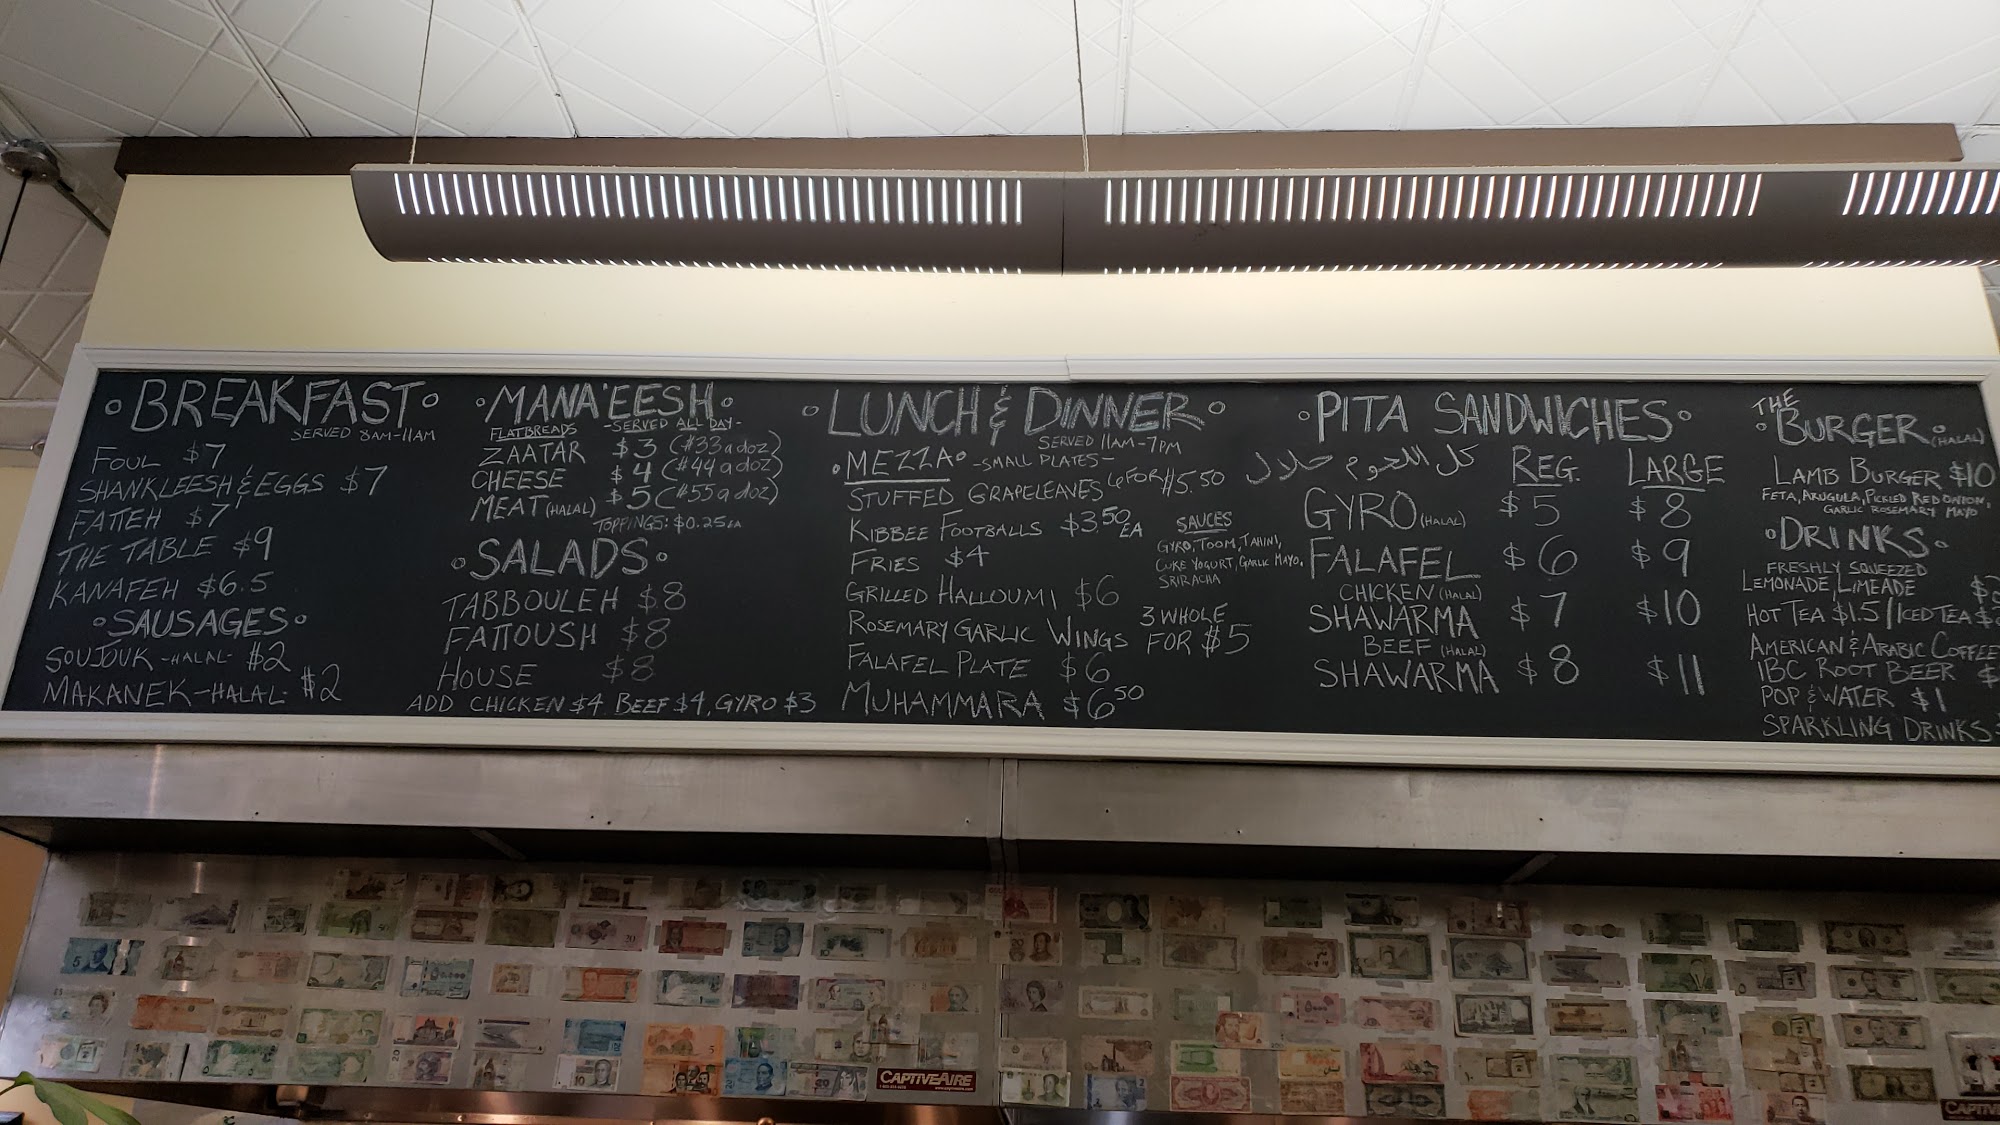 BREAKFAST
SERVED 8AM-11AM
FOUL $7
SHANKLEESH & EGGS $7
FATTEH $7
THE TABLE $9
KANAFEH $6.5
SAUSAGES
SOUJOUK -HALAL- $2
MAKANEK -HALAL- $2
MANA'EESH
FLATBREADS -SERVED ALL DAY-
ZAATAR $3 ($33 a doz)
CHEESE $4 ($44 a doz)
MEAT (HALAL) $5 ($55 a doz)
TOPPINGS: $0.25 EA
SALADS
TABBOULEH $8
FATTOUSH $8
HOUSE $8
ADD CHICKEN $4 BEEF $4, GYRO $3
LUNCH & DINNER
SERVED 11AM-7PM
MEZZA -SMALL PLATES-
STUFFED GRAPELEAVES 6 FOR $5.50
KIBBEE FOOTBALLS $3.50 EA
FRIES $4
GRILLED HALLOUMI $6
ROSEMARY GARLIC WINGS 3 WHOLE FOR $5
FALAFEL PLATE $6
MUHAMMARA $6.50
SAUCES
GYRO, TOOM, TAHINI,
CUKE YOGURT, GARLIC MAYO,
SRIRACHA
PITA SANDWICHES
كل اللحوم حلال REG. LARGE
GYRO (HALAL) $5 $8
FALAFEL $6 $9
CHICKEN (HALAL)
SHAWARMA $7 $10
BEEF (HALAL)
SHAWARMA $8 $11
THE
BURGER (HALAL)
LAMB BURGER $10
FETA, ARUGULA, PICKLED RED ONION,
GARLIC ROSEMARY MAYO
DRINKS
FRESHLY SQUEEZED
LEMONADE, LIMEADE
HOT TEA $1.5 / ICED TEA $
AMERICAN & ARABIC COFFEE
IBC ROOT BEER $
POP & WATER $1
SPARKLING DRINKS
CAPTIVEAIRE
CAPTIV